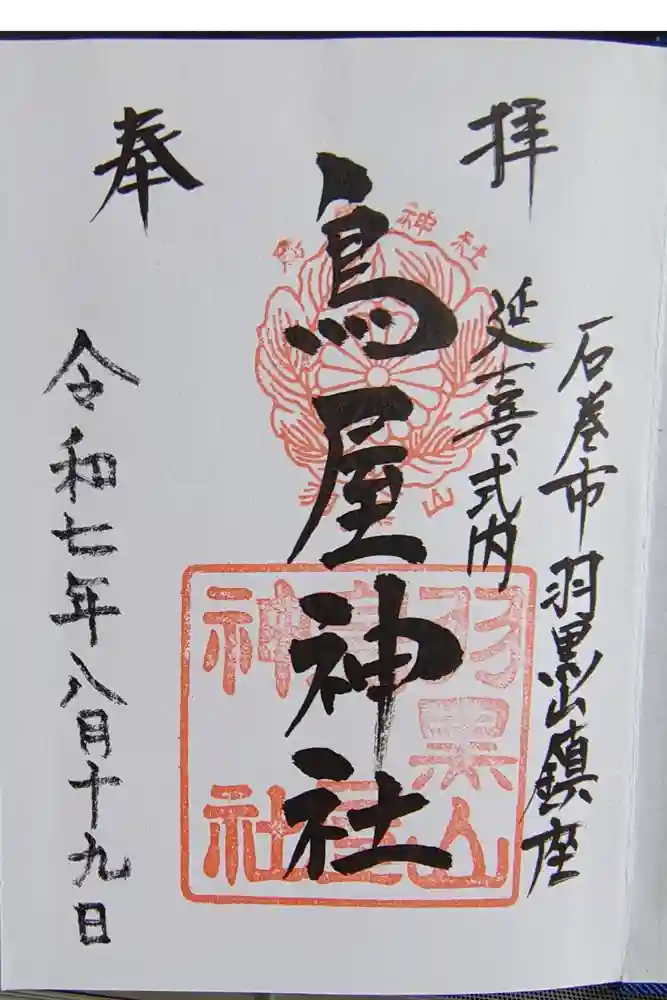 奉拝
石巻市羽黒山鎮座
延喜式内
鳥屋神社
令和七年八月十九日
神社
山
羽黒山
鳥屋
神社